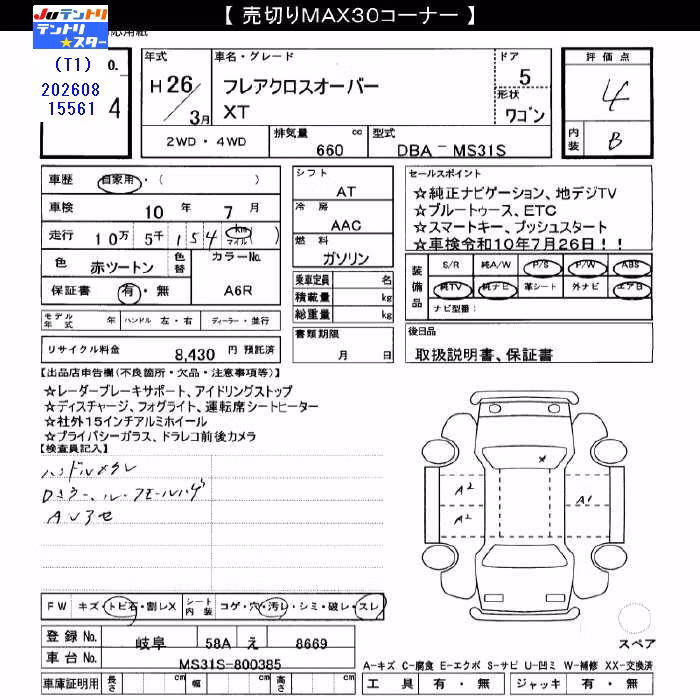 【 売切りMAX30コーナー 】
JUテントリ
テントリ★スター
応用紙
(T1) o.
202608
15561 4
年式 車名・グレード ドア 評価点
H 26/3月 フレアクロスオーバー XT 5 4
形状 ワゴン
2WD ・ 4WD 排気量 cc 660 型式 DBA － MS31S 内装 B
車歴 自家用・( )
車検 10 年 7 月
走行 10万 5千 154 km マイル ( )
色 赤ツートン 色替 カラーNo. A6R
保証書 有・無
モデル年式 年 ハンドル 左・右 ディーラー・並行
リサイクル料金 8,430 円 預託済
シフト AT
冷房 AAC
燃料 ガソリン
乗車定員 名
積載量 kg
総重量 kg
書類期限 月 日
セールスポイント
☆純正ナビゲーション、地デジTV
☆ブルートゥース、ETC
☆スマートキー、プッシュスタート
☆車検令和10年7月26日！！
装備品 S/R 純A/W P/S P/W ABS
純TV 純ナビ 革シート 外ナビ エアB
ナビ型番：
後日品
取扱説明書、保証書
【出品店申告欄(不良箇所・欠品・注意事項等)】
☆レーダーブレーキサポート、アイドリングストップ
☆ディスチャージ、フォグライト、運転席シートヒーター
☆社外15インチアルミホイール
☆プライバシーガラス、ドラレコ前後カメラ
【検査員記入】
ハンドルメクレ
A2
A2
A1
×
FW キズ・トビ石・割レX シート内装 コゲ・穴・汚レ・シミ・破レ・スレ
登録No. 岐阜 58A え 8669
車台No. MS31S-800385
車庫証明用 長さ cm 幅 cm 高さ cm
スペア
A-キズ C-腐食 E-エクボ S-サビ U-凹ミ W-補修 XX-交換済
工具 有・無 ジャッキ 有・無